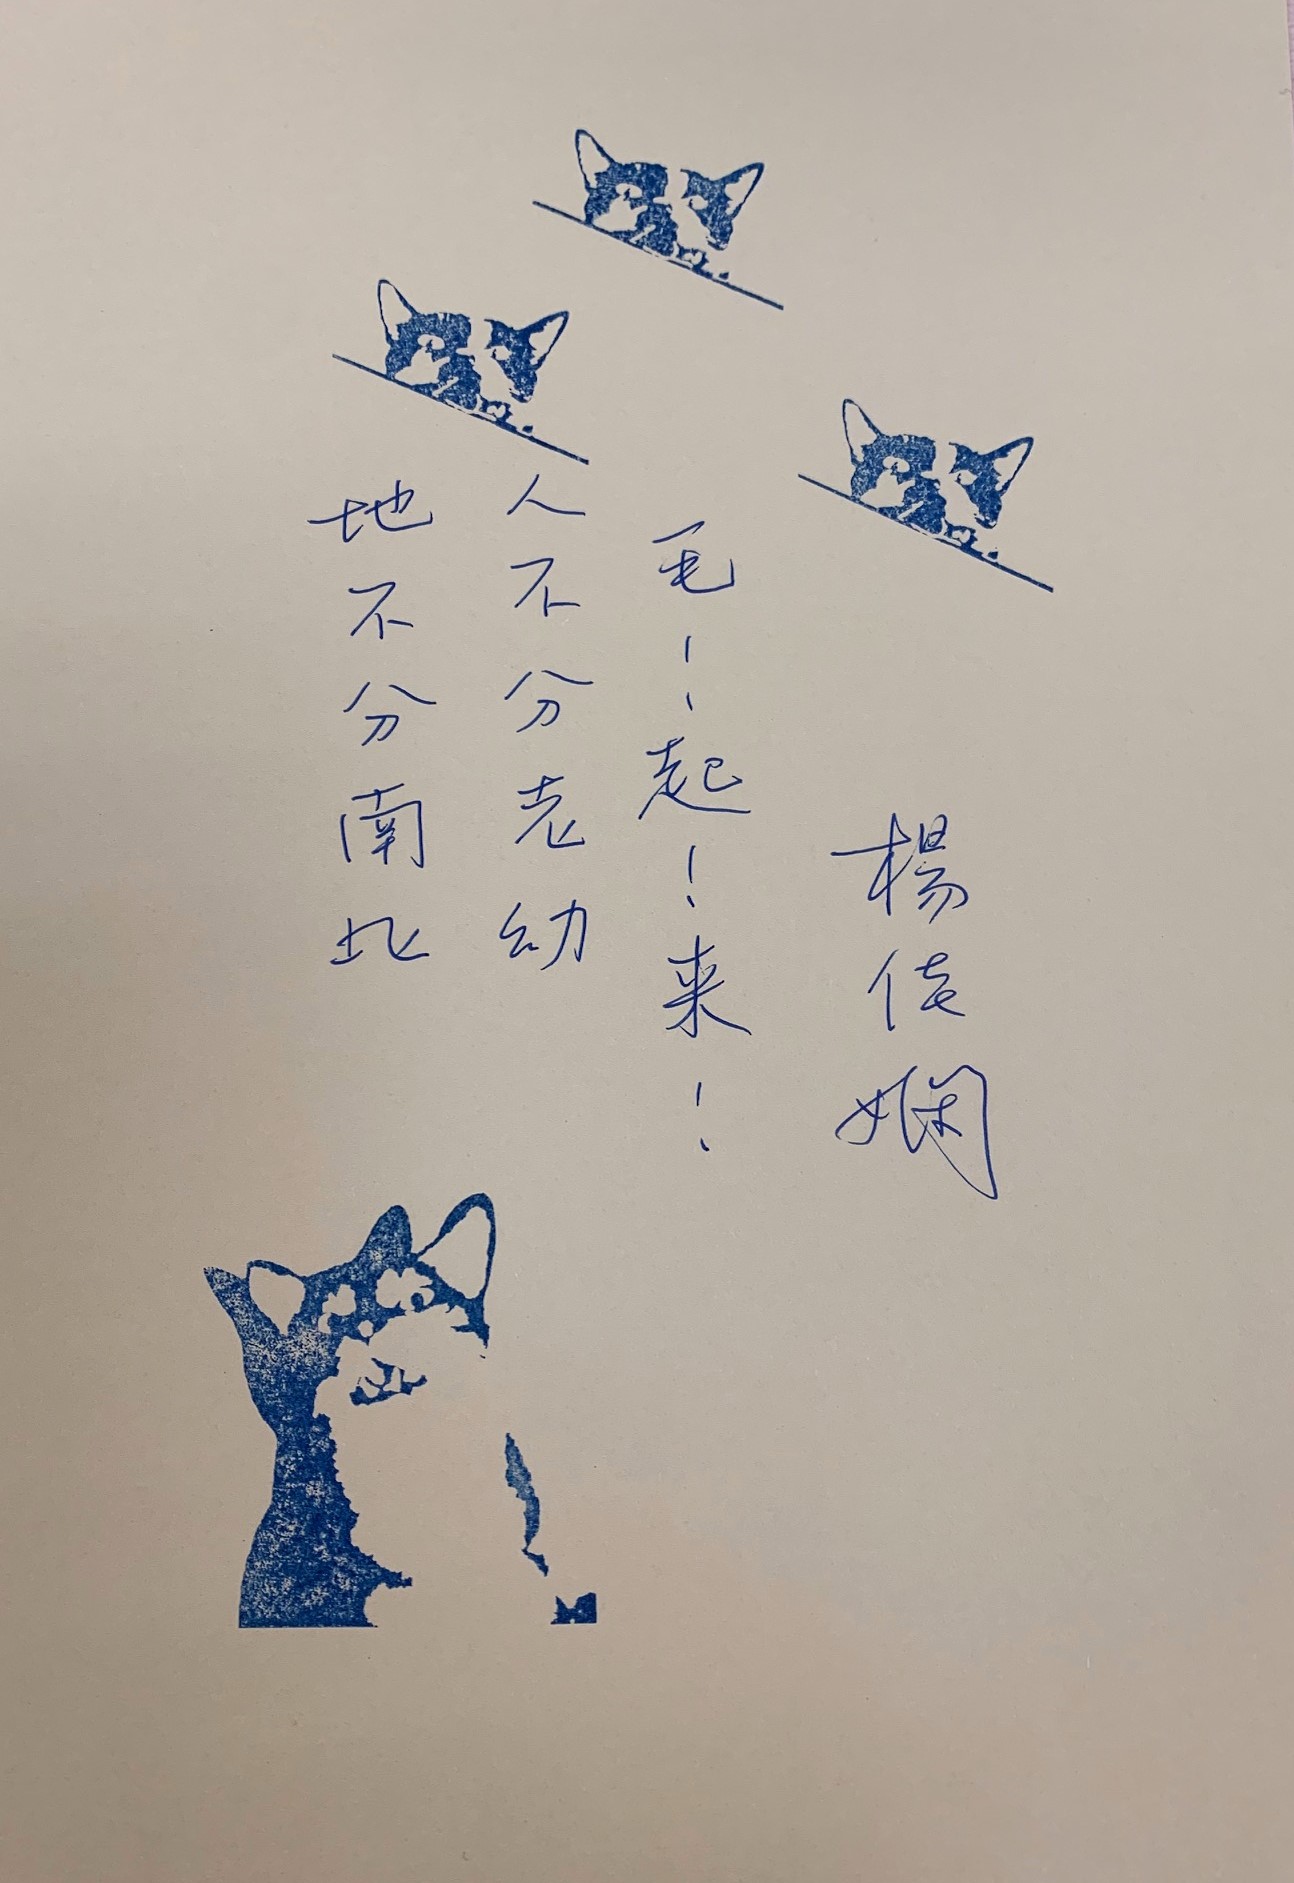 楊佳嫻
毛!起!来!
人不分老幼
地不分南北